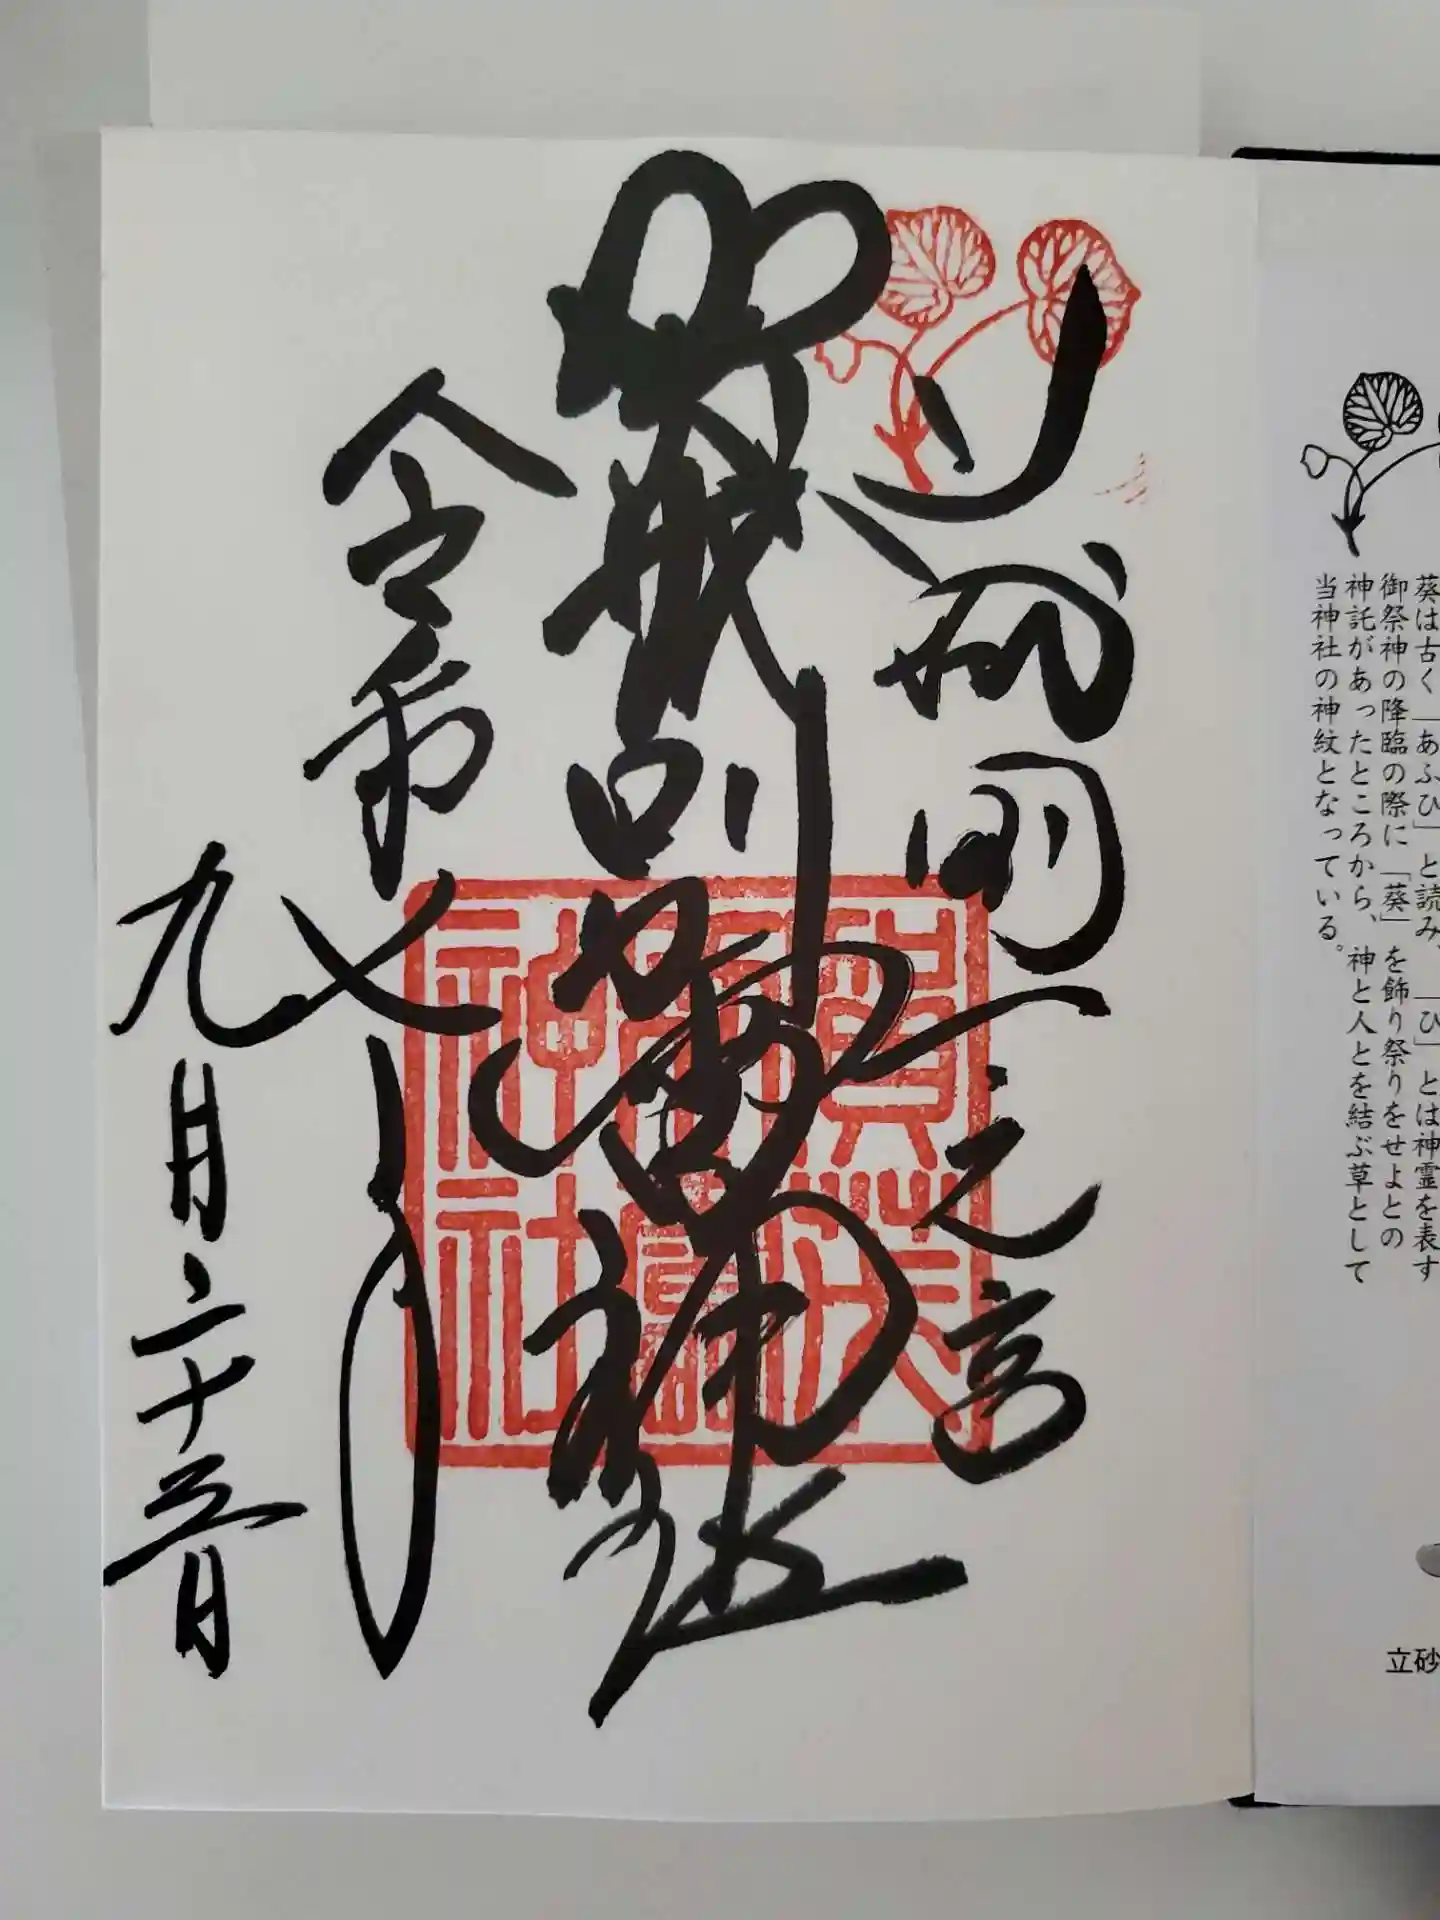 葵は古く「あふひ」と読み、「ひ」とは神霊を表す
御祭神の降臨の際に「葵」を飾り祭りをせよとの
神託があったところから、神と人とを結ぶ草として
当神社の神紋となっている。
立砂
山城国一之宮
賀茂別雷神社
令和七年
九月二十五日
賀茂
別雷
神社